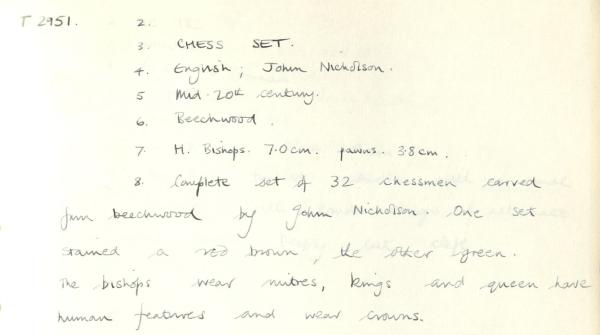 T 2951. 2.
3. CHESS SET.
4. English; John Nicholson.
5 Mid-20th century.
6. Beechwood.
7. H. Bishops. 7.0cm. pawns. 3.8cm.
8. Complete set of 32 chessmen carved
from beechwood by John Nicholson. One set
stained a red brown, the other green.
The bishops wear mitres, kings and queen have
human features and wear crowns.